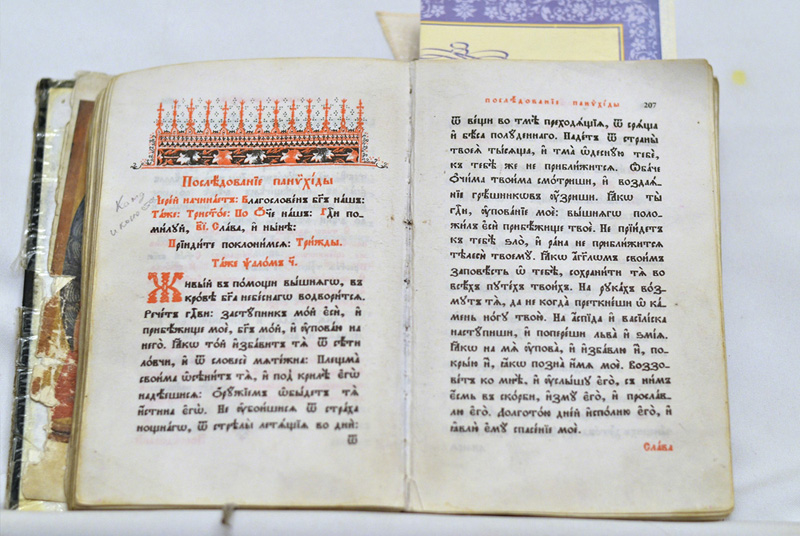 Послѣдованїе панѷхїды
Іерей начинаетъ: Благословенъ бг҃ъ нашъ:
Таже: Трист҃ое: По Оч҃е нашъ: Гд҃и по
милуй, в҃і. Слава, и нынѣ:
Прїидите поклонимсѧ: Трижды.
Таже ѱаломъ ч҃.
Живый въ помощи вышнѧгѡ, въ
кровѣ бг҃а небеснагѡ водворитсѧ.
Речетъ гд҃ви: заступникъ мой єсѝ, и
прибѣжище моѐ, бг҃ъ мой, и уповаю на
него. Ꙗкѡ той избавитъ тѧ ѿ сѣти
ловчи, и ѿ словесѐ мѧтежна: Плещма
своима ѡсѣнитъ тѧ, и под крилѣ єгѡ̀
надѣешисѧ: Оружїемъ ѡбыдетъ тѧ
истина єгѡ̀. Не убоишисѧ ѿ страха
нощнагѡ, ѿ стрѣлы летѧщїѧ во днѝ:
ѿ
послѣдованїе панѷхїды 207
ѿ вещи во тмѣ преходѧщїѧ, ѿ срѧща
и бѣса полуденнаго. Падетъ ѿ страны
твоеѧ̀ тысѧща, и тма ѡдесную тебѐ,
къ тебѣ же не приближитсѧ. Ѻбаче
очима твоима смотриши, и воздаѧ-
нїе грѣшникѡвъ узриши. Ꙗкѡ ты
гд҃и, упованїе моѐ: вышнѧго поло-
жилъ єсѝ прибѣжище твоѐ. Не прїидетъ
къ тебѣ ѕло, и рана не приближитсѧ
тѣлесѝ твоему. Ꙗкѡ аг҃глѡмъ своимъ
заповѣсть ѡ тебѣ, сохранити тѧ во
всѣхъ путехъ твоихъ. На рукахъ воз-
мутъ тѧ, да не когда преткнеши ѡ ка-
мень ногу твою. На аспида и василїска
наступиши, и попереши льва и ѕмїѧ.
Ꙗкѡ на мѧ упова, и избавлю и, по-
крыю и, ꙗкѡ позна имѧ моѐ. Воззо-
ветъ ко мнѣ, и услышу єгѡ̀, съ нимъ
єсмь въ скорби, изму єгѡ̀, и просла-
влю єгѡ̀. Долготою днѝй исполню єгѡ̀, и
ꙗвлю єму спасенїе моѐ.
Слава